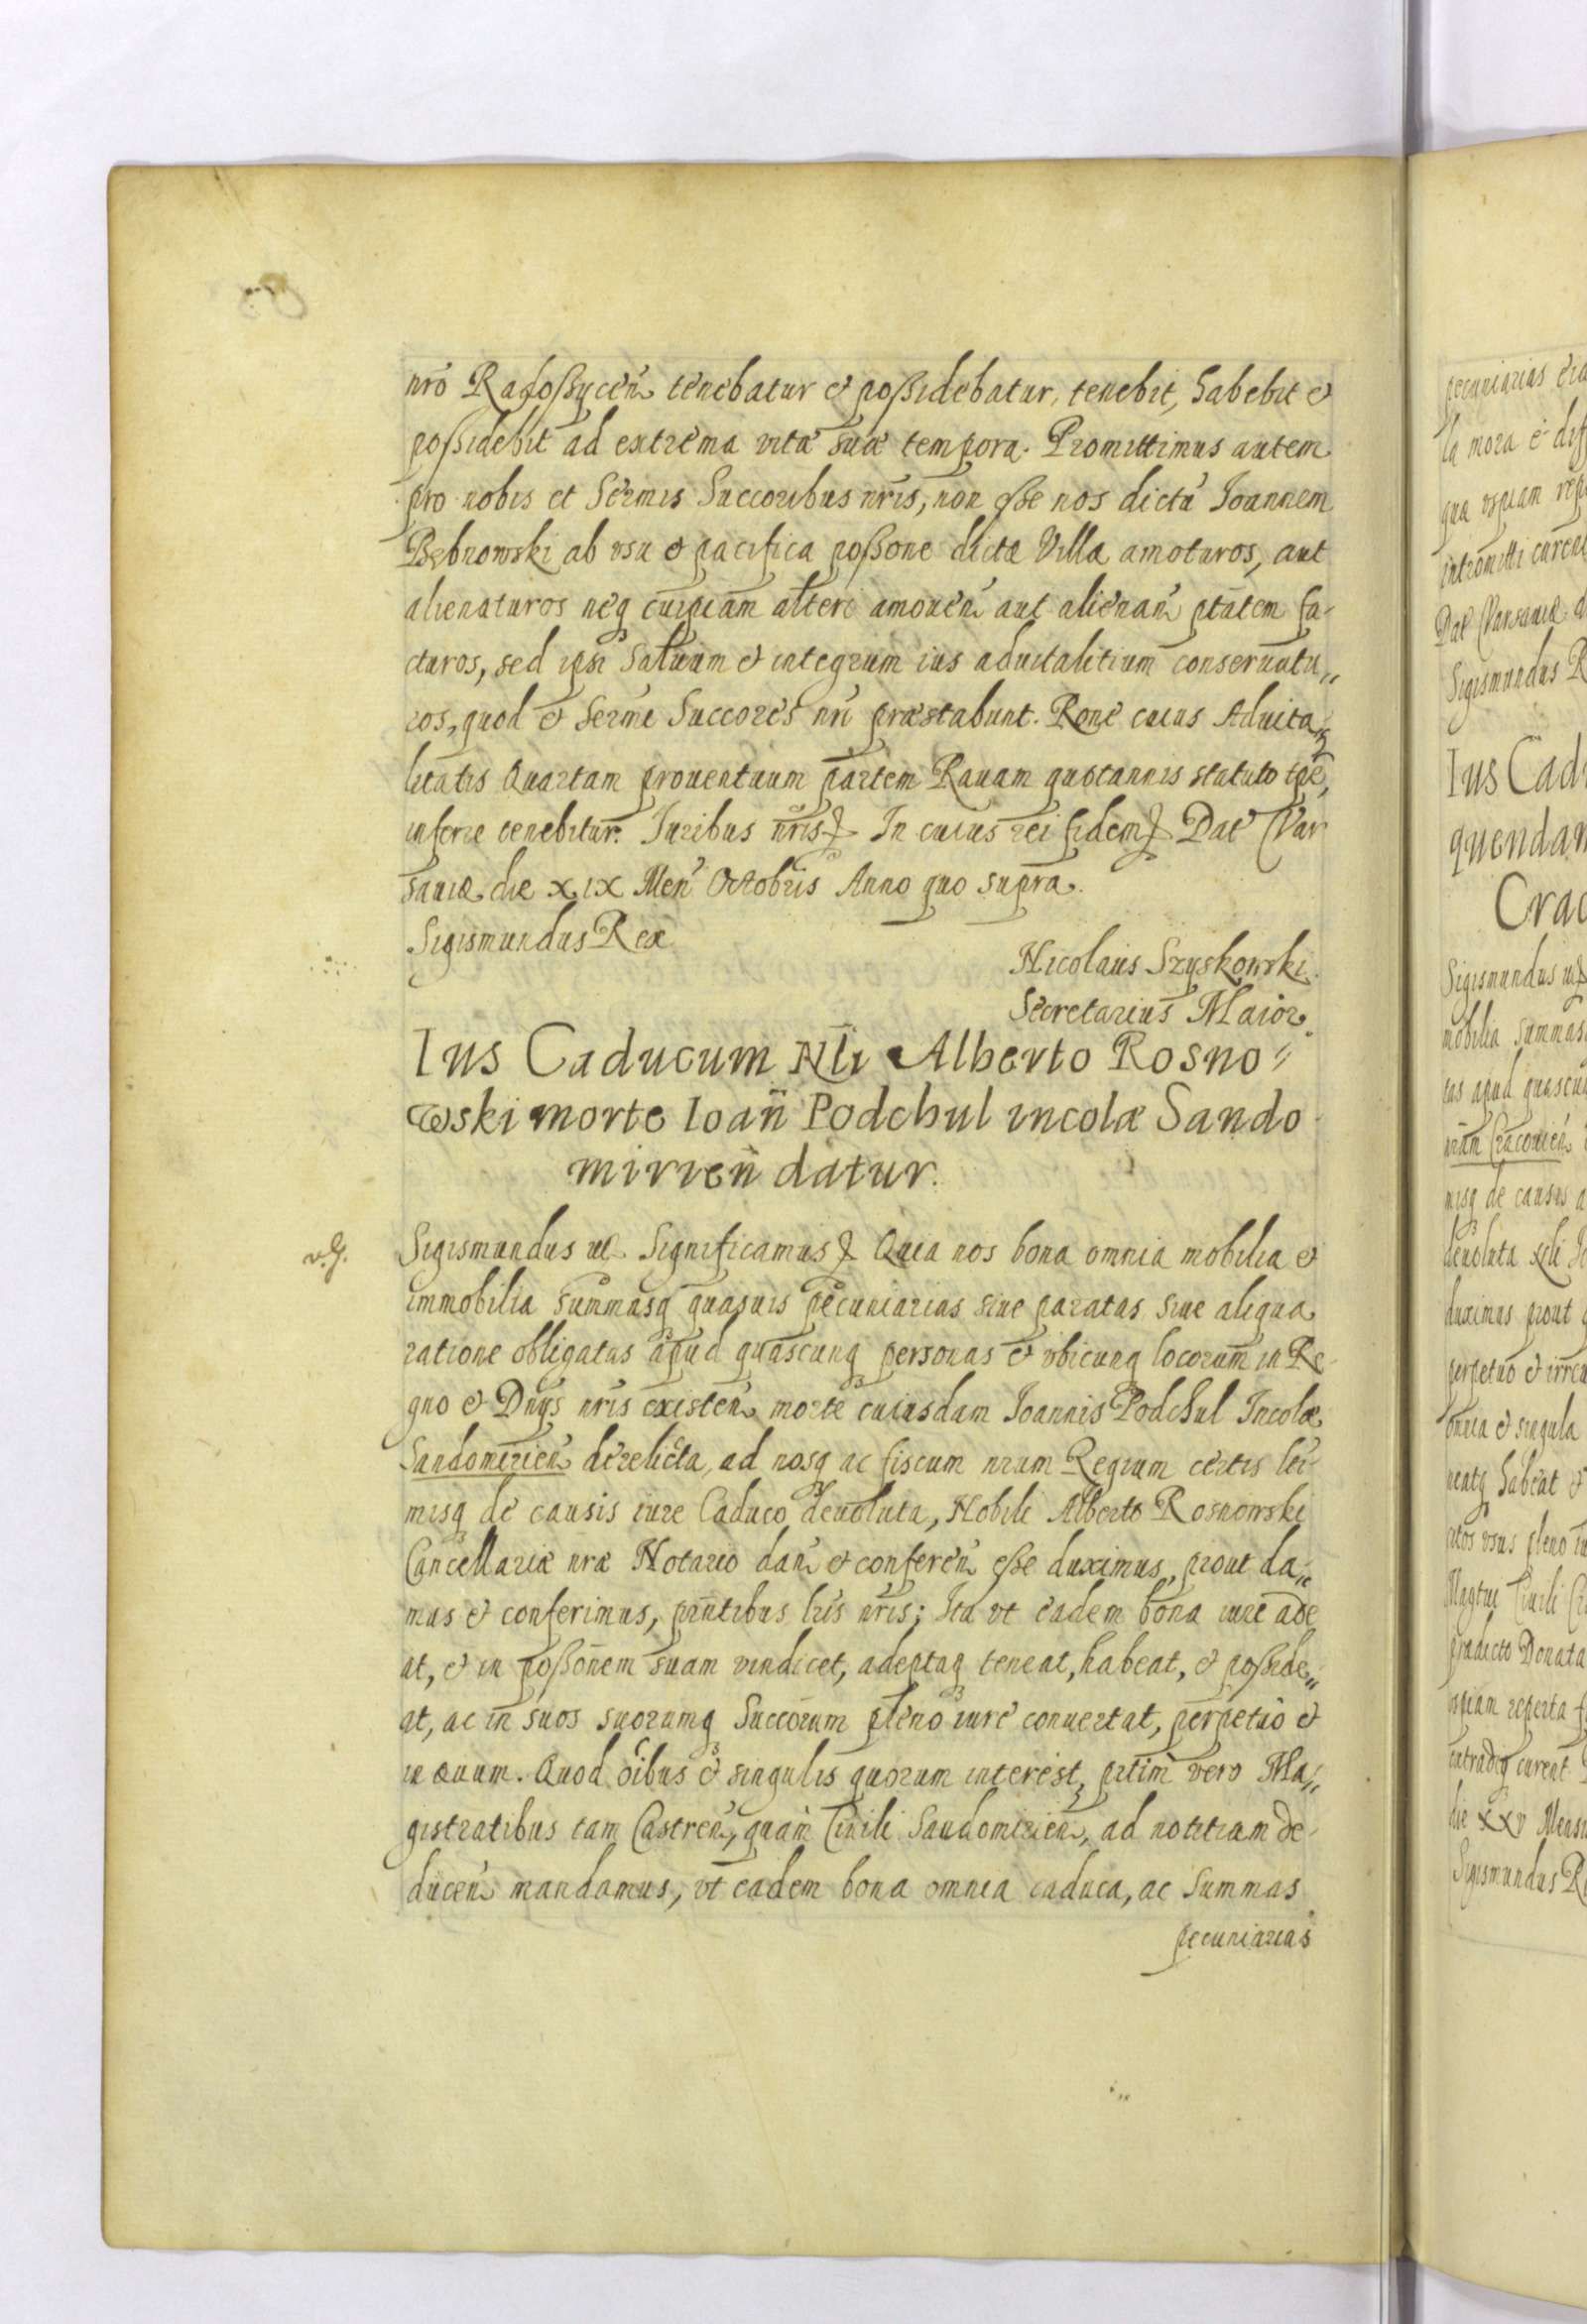 nrõ Radoßycen̄ tenebatur & poßidebatur, tenebit, habebit &
poßidebit ad extrema vitæ suæ tempora. Promittimus autem
pro nobis et Sermis Succoribus nrīs, non eße nos dictū Joannem
Bębnowski ab vsu & pacifica poßone dictæ Villæ amoturos, aut
alienaturos neq cuipiam alteri amouen̄ aut alienan̄ ptātem fa-
cturos, sed ipsi saluum & integrum ius aduitalitium conseruatu„
ros, quod & Sermi Succores nrī præstabunt. Rone cuius Aduita„
litatis Quartam prouentuum partem Rauam quotannis statuto tpē,
inferre tenebitur. Juribus nrīs & In cuius rei fidem & Dat Var
sauiæ die XIX Men̄ Octobris Anno quo supra.
Sigismundus Rex
Nicolaus Szyskowski
Secretarius Maior.
Ius Caducum Nli Alberto Rosno„
wski morte Ioan̄ Podchul incolæ Sando
mirien̄ datur.
Sigismundus & Significamus & Quia nos bona omnia mobilia &
immobilia summasq quasuis pecuniarias siue paratas siue aliqua
ratione obligatas apud quascunq personas & vbicunq locorum in Re-
gno & Dnys nrīs existen̄ morte cuiusdam Joannis Podchul Incolæ
Sandomirien̄ derelicta, ad nosq ac fiscum nrum Regium certis lei-
misq de causis iure Caduco deuoluta, Nobili Alberto Rosnowski
Cancellariæ nræ Notario dan̄ & conferen̄ eße duximus, prout da„
mus & conferimus, pn̄tibus lrīs nrīs; Ita vt eadem bona iure ade
at, & in poßonem suam vindicet, adeptaq teneat, habeat, & poßide„
at, ac in suos suorumq Succorum pleno iure conuertat, perpetuo &
in æuum. Quod oībus & singulis quorum interest, prtim vero Ma„
gistratibus tam Castren̄, quam Ciuili Sandomirien̄, ad notitiam de-
ducen̄ mandamus, vt eadem bona omnia caduca, ac Summas
pecuniarias